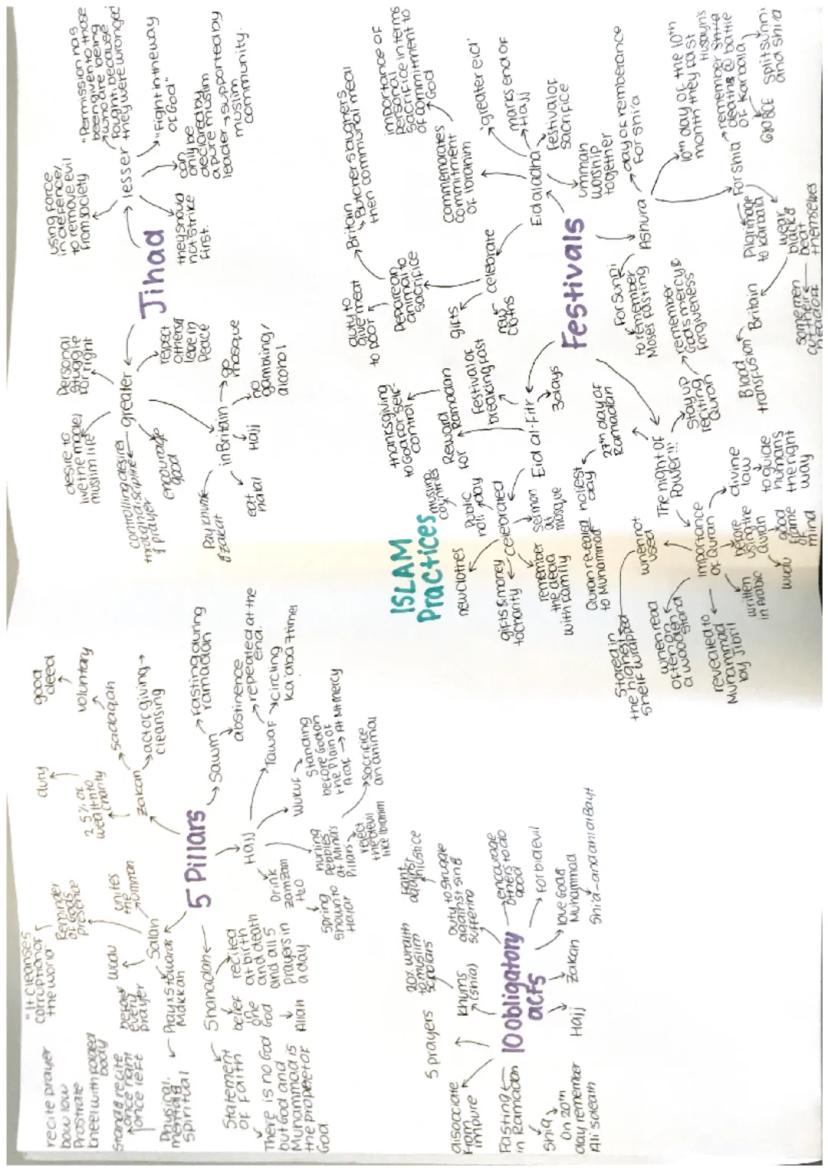 ISLAM
Practices
5 Pillars
Salah
unites
the
ummah
Reminder
of God's
presence
wudu
before
every
prayer
"It cleanses
corruption of
the world"
Prays toward
Makkah
recite prayer
bow low
Prostrate
kneel with folded
body
Stand & recite
once right
once left
Physical,
mental &
spiritual
Shahadah
belief
one
God
Allah
recited
at birth
and death
and all 5
prayers in
a day
Statement
of Faith
There is no God
but God and
Muhammad is
the prophet of
God
Zakah
2.5% of
wealth to
charity
duty
Sadaqah
voluntary
good
deed
act of giving →
cleansing
Sawm
Fasting during
ramadan
abstinence
Hajj
Tawaf
repeated at the
end.
circling
Ka'aba 7 times
Wukuf
Standing
before God on
the Plain of
Arafat → At Mt mercy
hurling
Pebbles
at Mina's
Pillars
reject
the devil
like Ibrahim
sacrifice
an animal
Drink
zamzam
H2O
spring
shown to
Hajar
Jihad
lesser
using force
in defence/
to remove evil
from society
"Permission has
been given to those
who are being
fought because
they were wronged
"Fight in the way
of God"
can
only be
declared by
a pure muslim
leader → supported by
muslim
community.
they should
not strike
first.
greater
Personal
struggle
for right
desire to
live the model
muslim life
controlling desires
through discipline
& prayer
encourage
good
respect
others &
leave in
Peace
in Britain
go
mosque
no
gambling/
alcohol
Hajj
eat
halal
Pay khums
& zakat
10 obligatory
acts
5 prayers
Khums
(shia)
20% wealth
to muslim
scholars
Duty to struggle
against sin &
suffering
fight
against
injustice
encourage
others to do
good
forbid evil
love God &
Muhammad
Zakah
Hajj
Fasting
in Ramadan
Shia
On 20th
day remember
Ali's death
disociate
from
impure
Festivals
Eid al adha
'greater eid'
marks end of
Hajj
Festival of
sacrifice
ummah
worship
together
commemorates
commitment
of Ibrahim
importance of
personal
sacrifice in terms
of commitment to
God
celebrate
Prepare an
animal to
sacrifice
duty to
give meat
to poor
Britain
Butchers slaughters,
then communal meal
gifts
new
cloths
Ashura
day of rememberance
For Shi'a
For Shia
10th day of the 10th
month they fast
remember
Husayn's
deaths @ battle
of Karbala
680BCE
split sunni
and shia
Pilgrimage
to Karbala
wear
black &
beat
themselves
Britain
Blood
transfusion
some men
cut their
For Sunni
to remember
Moses fasting
remember
God's mercy &
forgiveness
Eid al-Fitr
3 days
Festival of
breaking fast
Reward
for Ramadan
thanksgiving
to God for self-
control
celebrated
Public
holiday
muslim
countries
Sermon
at
mosque
remember
the dead
with family
gifts & money
to charity
new clothes
The night of
Power!!
27th day of
Ramadan
holiest
day
Quran revealed
to Muhammad
Stay up
reciting
Quran
importance
of Quran
divine
law
to guide
humans
the right
way
before
using the
Quran
wudu
good
frame
of
mind
written
in Arabic
revealed to
Muhammad
by Jibril
when read
often on
a wooden stand
when not
used
Stored in
the highest
shelf wrapped